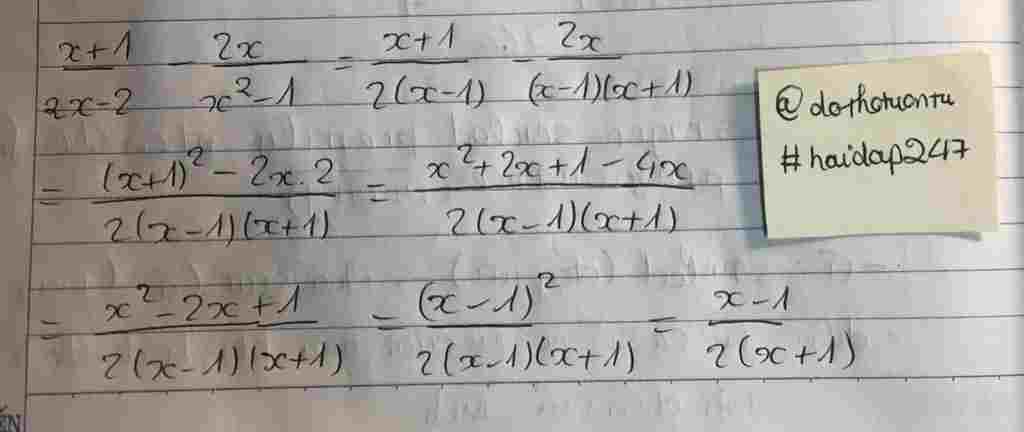 \frac{x+1}{2x-2} - \frac{2x}{x^2-1} = \frac{x+1}{2(x-1)} - \frac{2x}{(x-1)(x+1)}
= \frac{(x+1)^2 - 2x.2}{2(x-1)(x+1)} = \frac{x^2+2x+1-4x}{2(x-1)(x+1)}
= \frac{x^2-2x+1}{2(x-1)(x+1)} = \frac{(x-1)^2}{2(x-1)(x+1)} = \frac{x-1}{2(x+1)}
@dothotuontu
#haidap247
ÉN